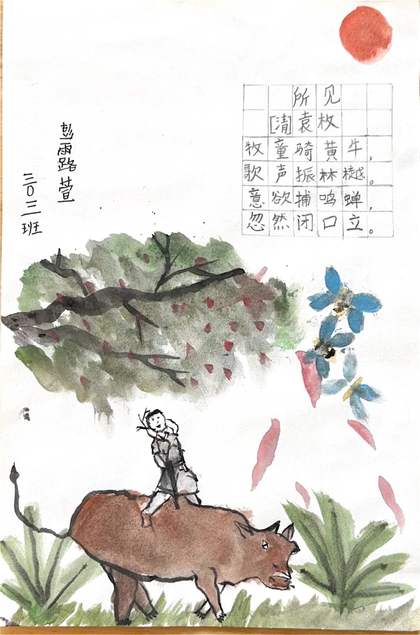 所见
[清]袁枚
牧童骑黄牛，
歌声振林樾。
意欲捕鸣蝉，
忽然闭口立。
彭雨路萱
三〇三班